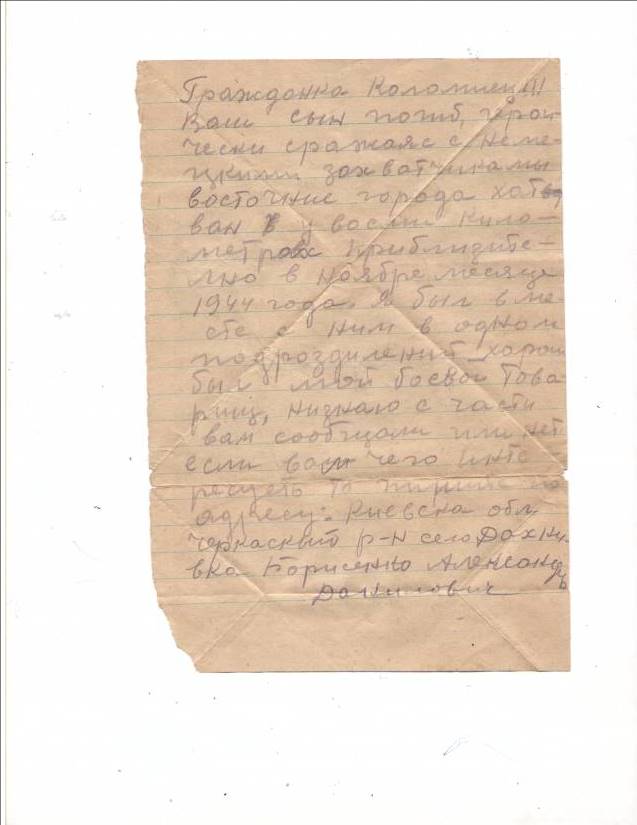 Гражданка Коломиец!!!
Ваш сын погиб, герои-
чески сражаяс с неме-
цкими захватчиками
восточние города хат
ван в у восми кило-
метрах приблизите-
лно в ноябре месяце
1944 года. Я был вме-
сте с ним в одном
подрозделений хорош
был мой боевой Това-
рищ, низнаю с части
вам сообщали или нет
если вам чего инте
ресуеть то пишите по
адресу: Киевска обл.
черкаский р-н село Дахно
вка Борисенко Александр
Данилович